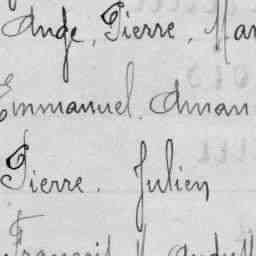 Ange, Pierre, Mar
Emmanuel. Aman
Pierre. Julien
François